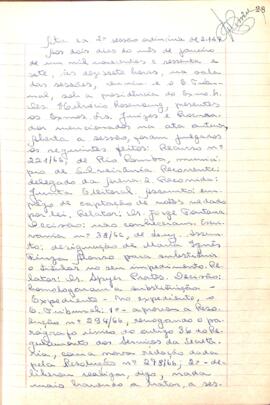 28
Ata da 2ª sessão
Aos dois dias do mês de janeiro
de um mil novecentos e sessenta e
sete, às dezesseis horas, na sala
das sessões, reuniu-se o E. Tribu-
nal, sob a presidência do Exmo. Sr.
Des. presentes
os Exmos. Srs. Juízes e Procura-
dor mencionados na ata anterior.
Aberta a sessão, foram julgados
os seguintes feitos: Recurso nº
221/66, de Rio Pomba, municí-
pio de Recorrente:
delegado da Recorrido:
Junta Eleitoral. Assunto:
de captação de votos vedado
por lei. Relator: Dr. Jorge Fontana
Decisão: não conheceram.
nº 38/66, de
designação de Maria Inês
para substituir
o titular no seu impedimento. Re-
lator: Dr. Decisão:
homologaram a substituição -
Expediente - No expediente, o
E. Tribunal: 1º - aprovou a Reso-
lução nº 294/66, revogando o pa-
rágrafo único do artigo 36 do Re-
gulamento dos Serviços da Secreta-
ria, com a nova redação dada
pela Resolução nº 278/66; 2º - de-
liberou
mais havendo a tratar, a ses-